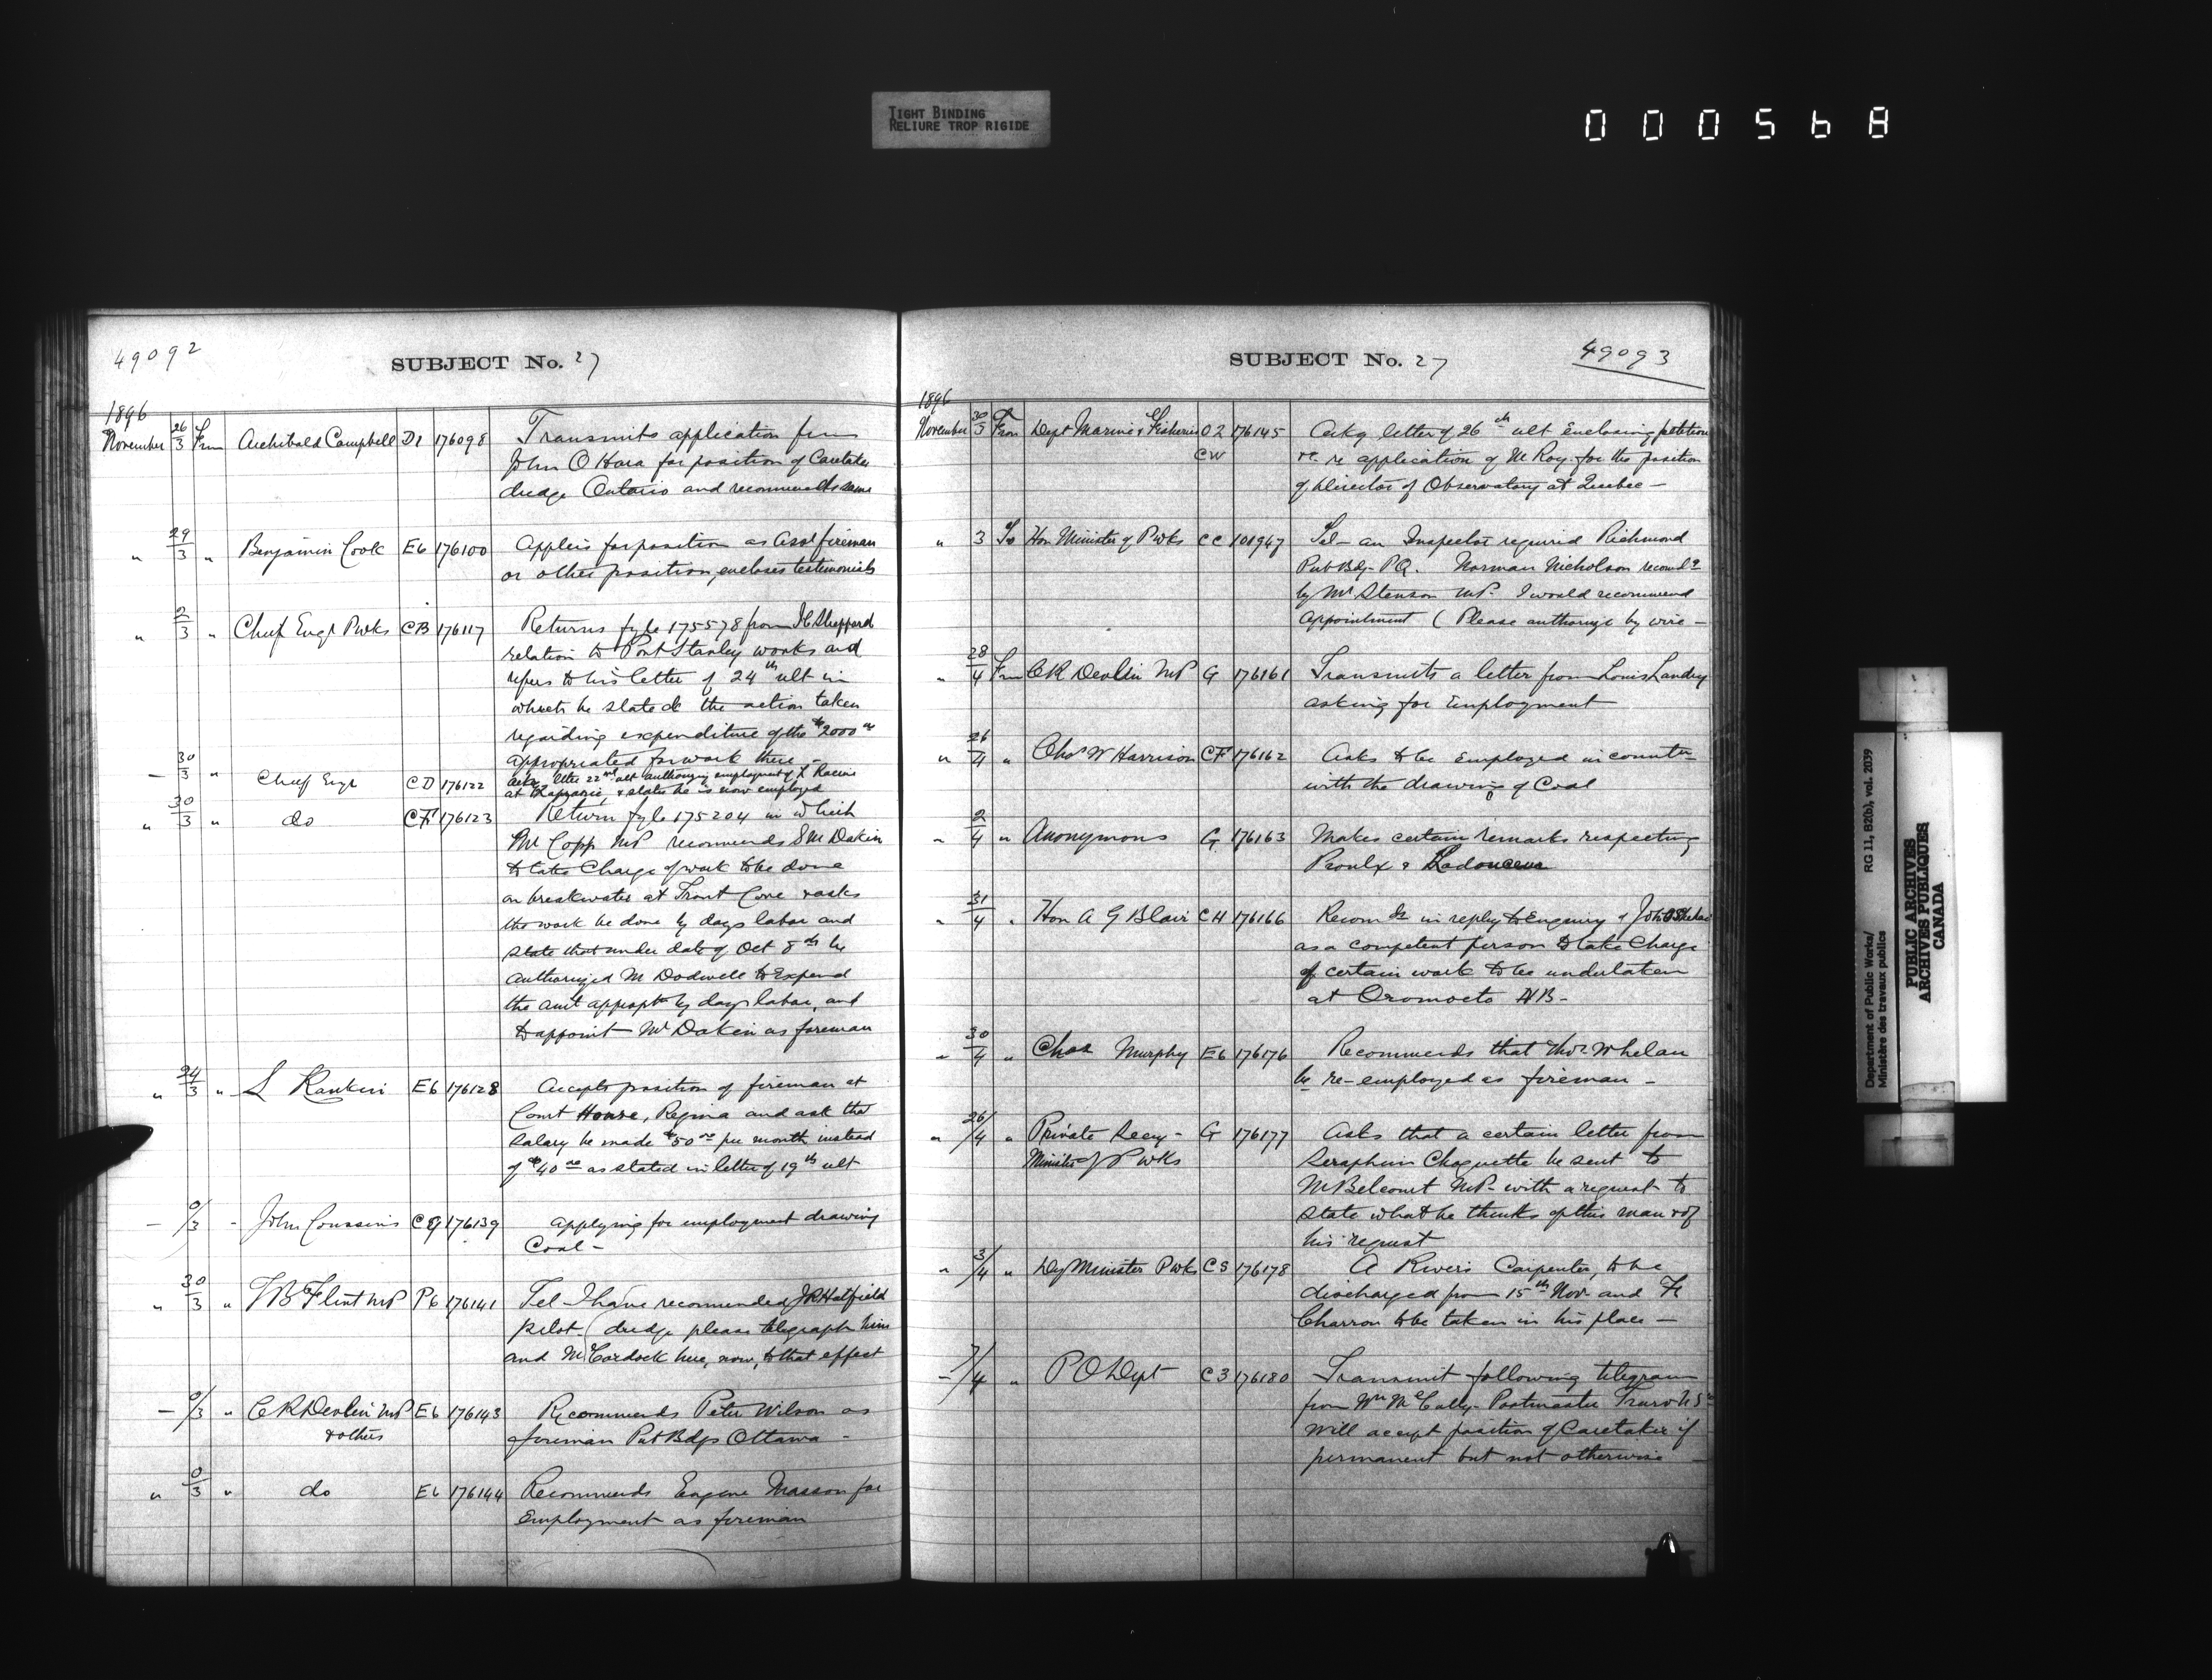 TIGHT BINDING
RELIURE TROP RIGIDE
000568
49092
SUBJECT No. 27
1896
November 26/3 From Archibald Campbell D1 176098 Transmits application from
John O Hara for position of Caretaker
dredge Ontario and recommends same
" 29/3 " Benjamin Cook E6 176100 Applies for position as Asst fireman
or other position, encloses testimonials
" 2/3 " Chief Engr Pwks CB 176117 Returns fyle 175578 from Sheppard
relation to Port Stanley works and
refers to his letter of 24th ult in
which he stated the action taken
regarding expenditure of the $2000 00
appropriated for work there -
— 30/3 " Chief Engr CD 176122 Ackg letter 22nd ult authorizing employment of
at & states he is now employed
" 30/3 " do CF 176123 Return fyle 175204 in which
Mr Copp MP recommends S M Dakin
to take Charge of work to be done
on breakwater at Trout Cove & asks
the work be done by days labor and
state that under date of Oct 8th he
authorized M Dodwell to Expend
the amt appropt by days labor, and
to appoint Mr Dakin as foreman
" 24/3 " L Rankin E6 176128 Accepts position of fireman at
Court House, Regina and ask that
salary be made $50 00 per month instead
of $40 00 as stated in letter of 19th ult
— 0/3 - John Coussins 176139 Applying for employment drawing
Coal -
" 30/3 " T B Flint MP P6 176141 Tel - I have recommended J R Hatfield
pilot (dredge please telegraph him
and here, now, to that effect
— 0/3 " C R Devlin MP E6 176143 Recommends Peter Wilson as
& others
fireman Pub Bdgs Ottawa -
" 0/3 " do E6 176144 Recommends Eugene Masson for
Employment as fireman
SUBJECT No. 27
49093
1896
November 30/3 From Dept Marine & Fisheries O2 176145 Ackg letter of 26th ult Enclosing petition
CW
re application of M Roy for the position
of Director of Observatory at Quebec —
" 3 To Hon Minister of Pwks CC 101947 Tel - an Inspector required Richmond
Pub Bdg - PQ. Norman Nicholson recomd
by Mr Stenson MP. I would recommend
appointment (Please authorize by wire —
" 28/4 From C R Devlin MP G 176161 Transmits a letter from Louis Landry
asking for Employment
" 26/4 " Chas W Harrison CF 176162 Asks to be Employed in connectn
with the drawing of Coal
" 2/4 " Anonymous G 176163 Makes certain remarks respecting
Proulx & Ladouceur
" 31/4 " Hon A G Blair CH 176166 Recomds in reply to Enquiry John
as a competent person to take Charge
of certain work to be undertaken
at Oromocto NB -
" 30/4 " Chas Murphy E6 176176 Recommends that Thos Whelan
be re-employed as fireman -
" 26/4 " Private Secy - G 176177 Asks that a certain letter from
Minister of Pwks
Seraphin Choquette be sent to
M Belcourt MP - with a request to
state what he thinks of this man & of
his request
" 3/4 " Dy Minister Pwks CS 176178 A Rivers Carpenter, to be
discharged from 15th Nov and
Charron to be taken in his place —
— 7/4 " P O Dept C3 176180 Transmit following telegram
from Wm McCully - Postmaster Truro NS
Will accept position of Caretaker if
permanent but not otherwise —
Department of Public Works/
Ministère des travaux publics
RG 11, B2(b), vol. 2039
PUBLIC ARCHIVES
ARCHIVES PUBLIQUES
CANADA